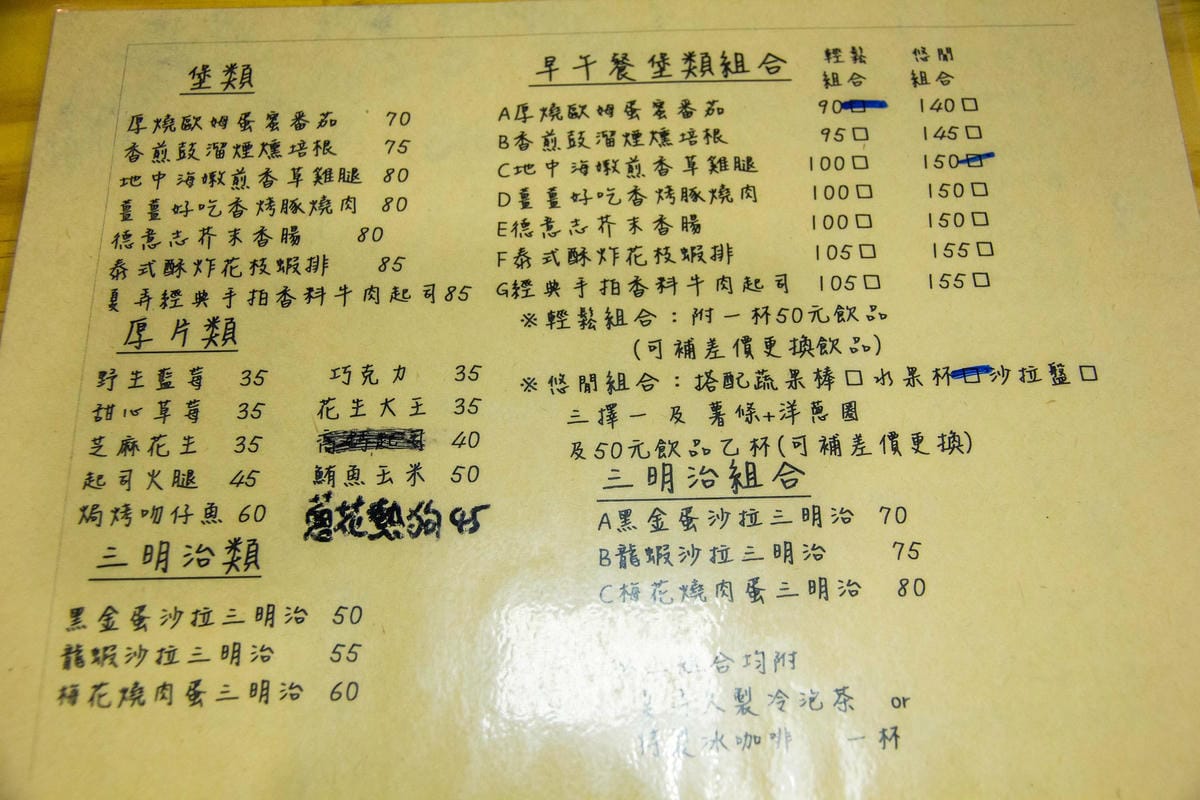 堡類
厚燒歐姆蛋蜜番茄 70
香煎鼓溜煙燻培根 75
地中海嫩煎香草雞腿 80
薑薑好吃香烤豚燒肉 80
德意志芥末香腸 80
泰式酥炸花枝蝦排 85
夏弄經典手拍香料牛肉起司85
厚片類
野生藍莓 35 巧克力 35
甜心草莓 35 花生大王 35
芝麻花生 35 40
起司火腿 45 鮪魚玉米 50
焗烤吻仔魚 60 蔥花熱狗 45
三明治類
黑金蛋沙拉三明治 50
龍蝦沙拉三明治 55
梅花燒肉蛋三明治 60
早午餐堡類組合 輕鬆組合 悠閒組合
A厚燒歐姆蛋蜜番茄 90□ 140□
B香煎鼓溜煙燻培根 95□ 145□
C地中海嫩煎香草雞腿 100□ 150□
D薑薑好吃香烤豚燒肉 100□ 150□
E德意志芥末香腸 100□ 150□
F泰式酥炸花枝蝦排 105□ 155□
G經典手拍香料牛肉起司 105□ 155□
※輕鬆組合：附一杯50元飲品
(可補差價更換飲品)
※悠閒組合：搭配蔬果棒□水果杯□沙拉盤□
三擇一及 薯條+洋蔥圈
及50元飲品乙杯(可補差價更換)
三明治組合
A黑金蛋沙拉三明治 70
B龍蝦沙拉三明治 75
C梅花燒肉蛋三明治 80
合均附
製冷泡茶 or
冰咖啡 一杯